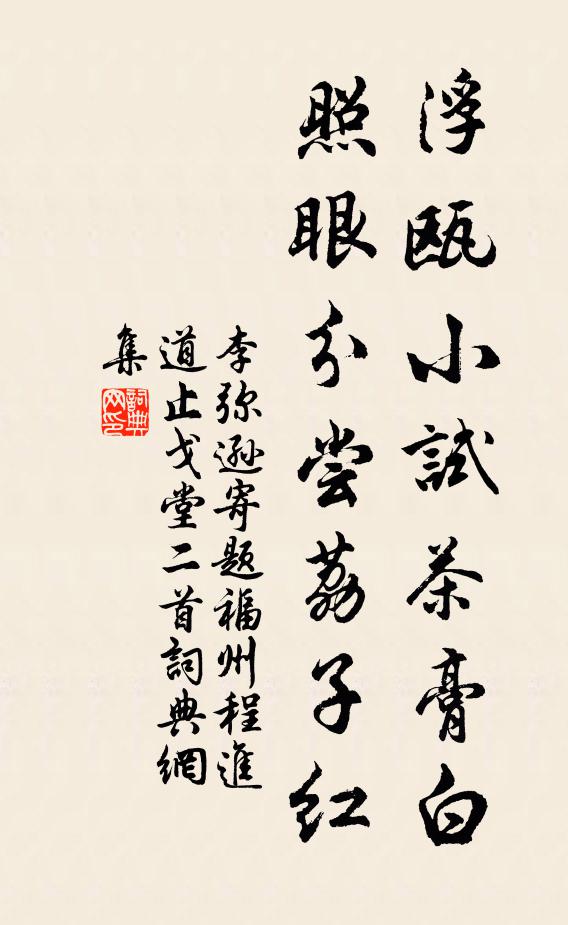 浮瓯小試茶膏白
照眼分尝荔子红
李弥遜寄题福州程進
道止戈堂二首詞典網
集
詞典
网印